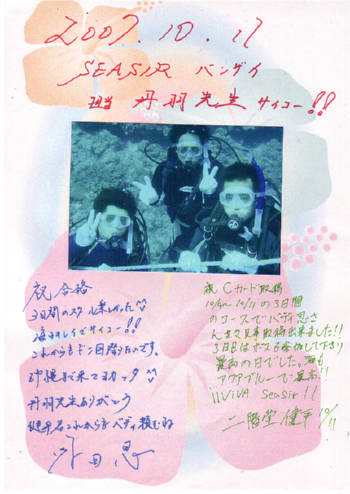 2007. 10. 11
SEASIR バンザイ
担当 丹羽先生 サイコー!!
祝 合格
3日間のスクール楽しかった^^
海キレイでサイコー!!
これからもドンドン潜りたいです。
沖縄まで来てヨカッタ^^
丹羽先生ありがとう
健平君これからもバディ頼むね
祝 Cカード取得
10/9〜10/11の3日間
のコースでバディ忍さ
んまで見事取得出来ました!!
3日目は
最高の日でした。海も
アクアブルーで最高!!
!!VIVA Seasir!!
二階堂 健平 10/11